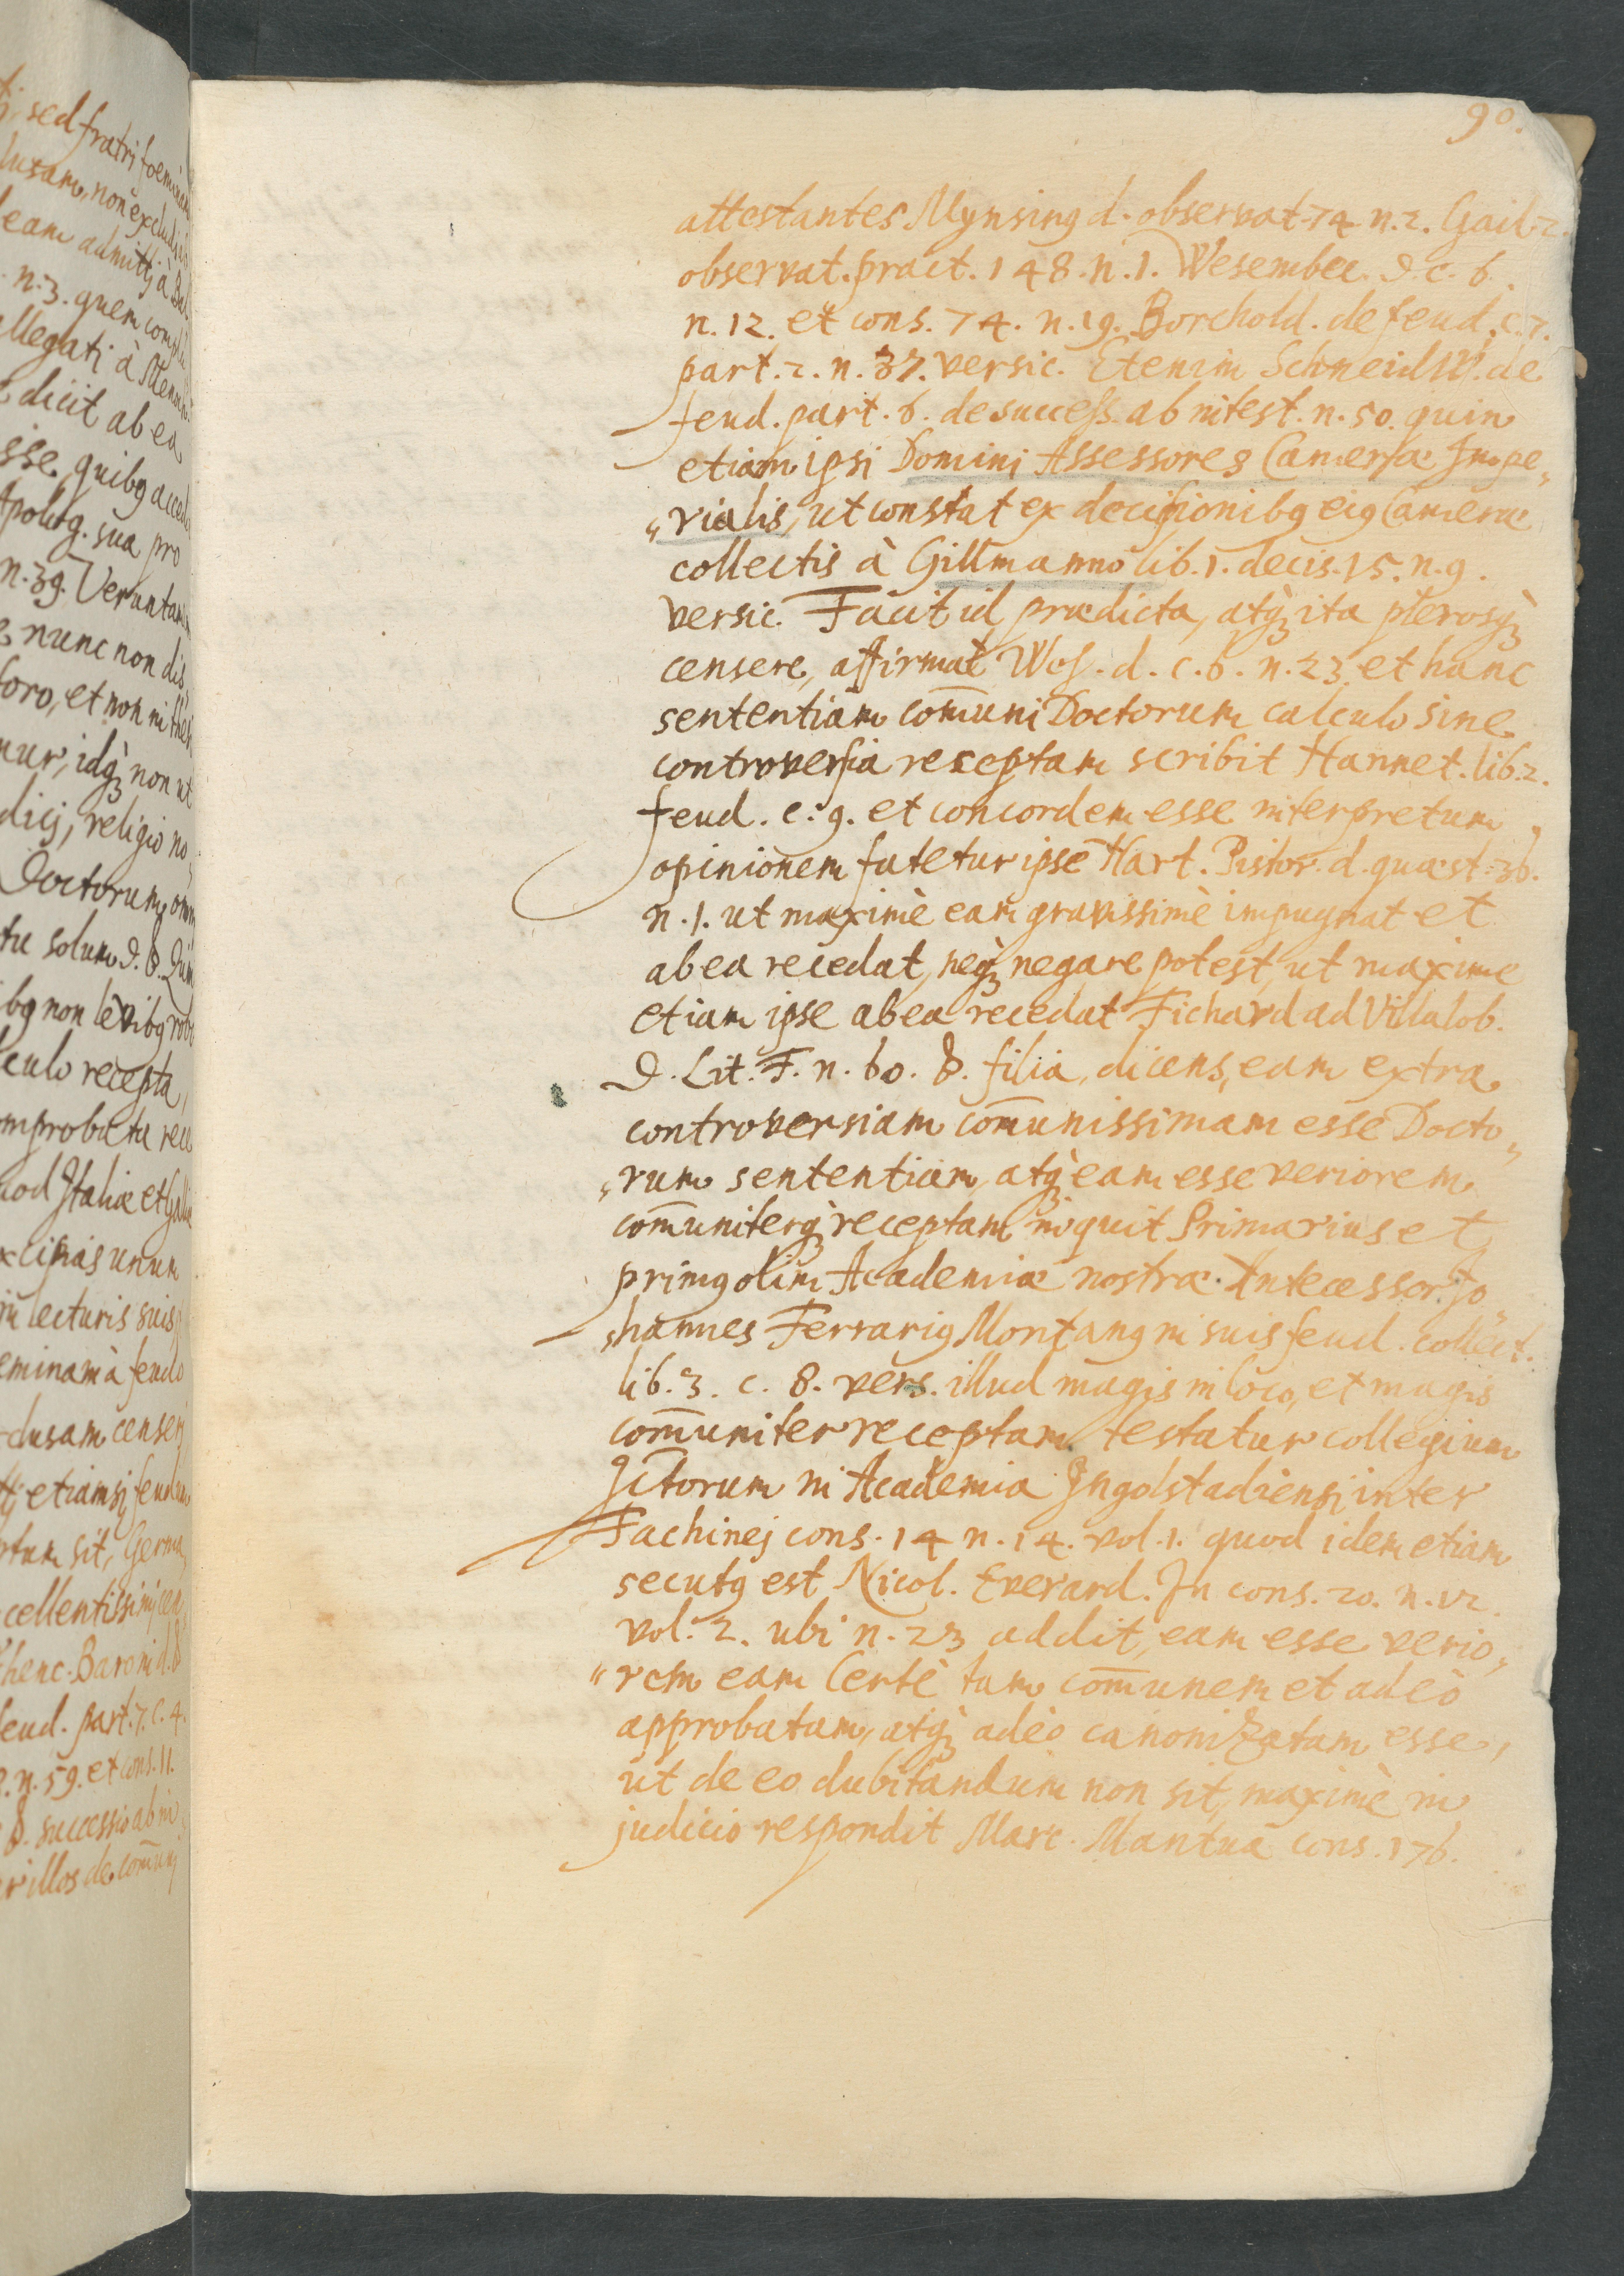 90.
attestantes Mynsing d. observat. 74 n. 2. Gail. 2.
observat. pract. 148. n. 1. Wesembec. d. c. 6.
n. 12. et cons. 74. n. 19. Borchold. de feud. c. 7.
part. 2. n. 37. versic. Etenim Schneidw. de
feud. part. 6. de success. ab intest. n. 50. quin
etiam ipsi Domini Assessores Cameræ Impe„
„rialis, ut constat ex decisionibꝰ eiꝰ Cameræ
collectis à Gillmanno lib. 1. decis. 15. n. 9.
versic. Facit id prædicta, atqꝫ ita plerosqꝫ
censere, affirmat Wes. d. c. 6. n. 23 et hanc
sententiam com̄uni Doctorum calculo sine
controversia receptam scribit Hannet. lib. 2.
feud. c. 9. et concordem esse interpretum
opinionem fatetur ipse Hart. Pistor. d. quæst. 36.
n. 1. ut maximè eam gravissimè impugnat et
ab ea recedat, neqꝫ negare potest, ut maxime
etiam ipse ab ea recedat Fichard ad Villalob.
d. Lit. F. n. 60. §. filia, dicens, eam extra
controversiam com̄unissimam esse Docto„
„rum sententiam, atqꝫ eam esse veriorem
com̄uniterqꝫ receptam inquit Primarius et
primꝰ olim Academiæ nostræ Antecessor Jo„
„hannes Ferrariꝰ Montanꝰ in suis feud. collect.
lib. 3. c. 8. vers. illud magis in loco, et magis
com̄uniter receptam testatur collegium
JCtorum in Academia Ingolstadiensi inter
Fachinej cons. 14 n. 14. vol. 1. quod idem etiam
secutꝰ est Nicol. Everard. Jn cons. 20. n. 12.
vol. 2. ubi n. 23 addit, eam esse verio„
„rem eam Certè tam com̄unem et adeò
approbatam, atqꝫ adeò canonizatam esse,
ut de eo dubitandum non sit, maximè in
judicio respondit Marc. Mantua cons. 176.